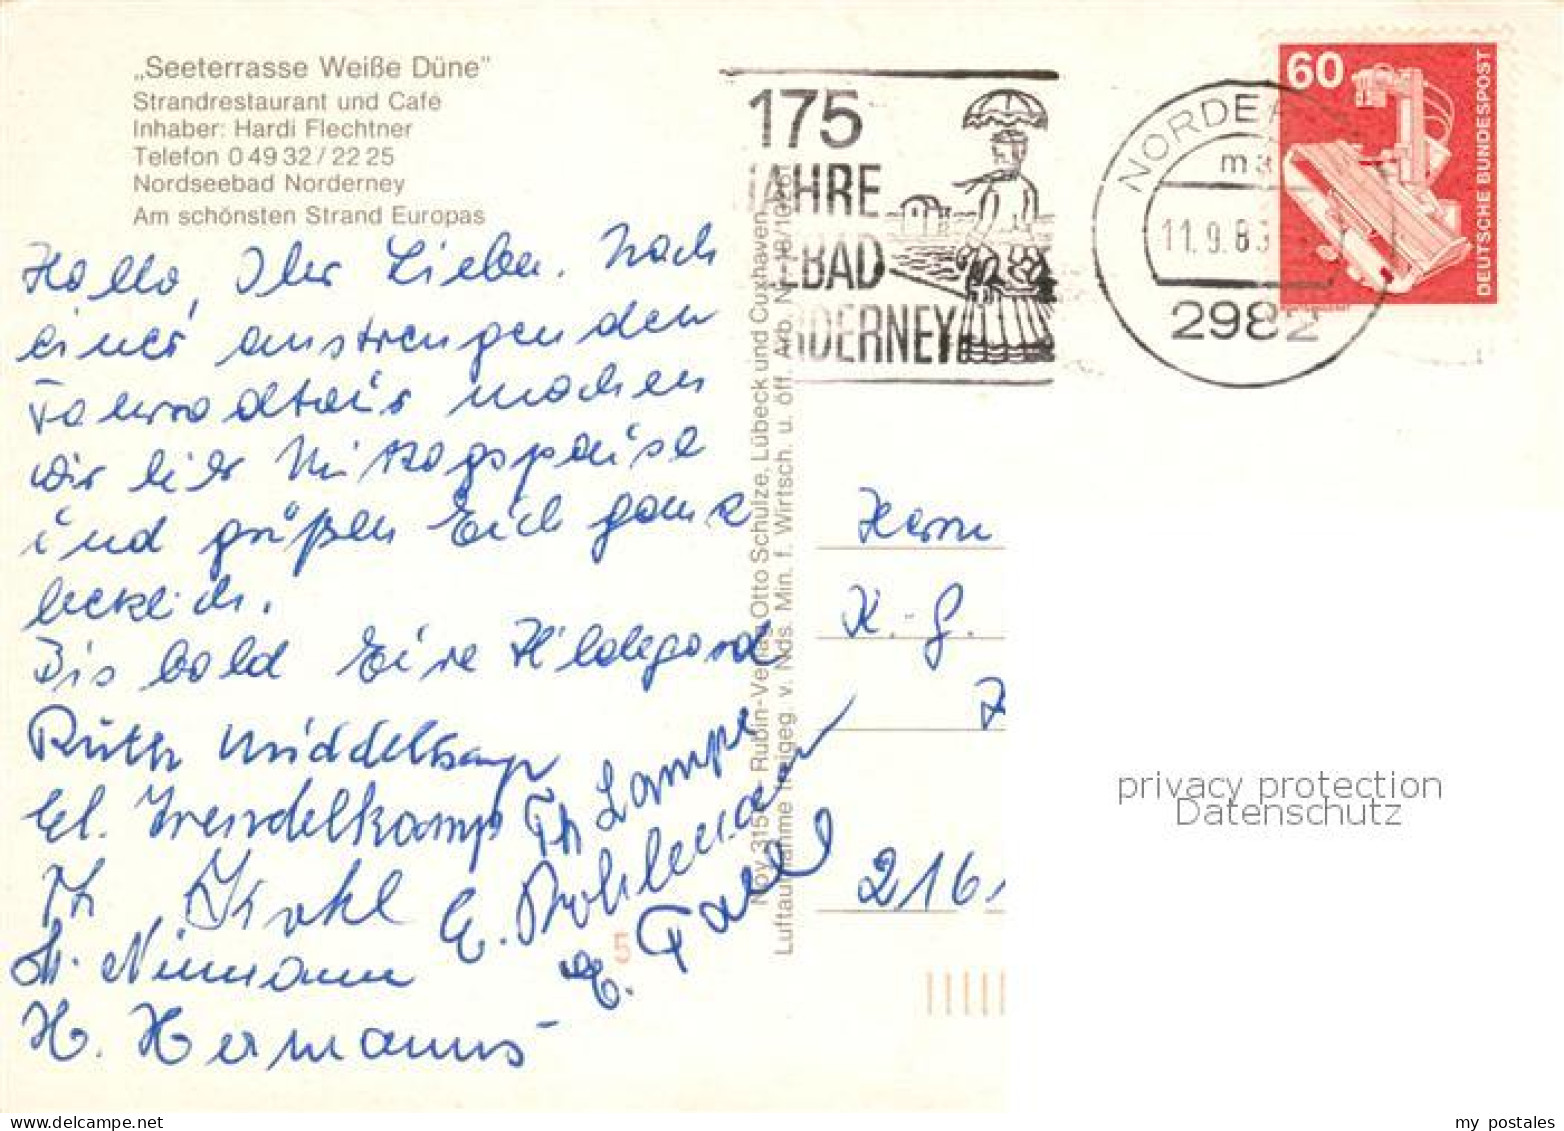 „Seeterrasse Weiße Düne"
Strandrestaurant und Café
Inhaber: Hardi Flechtner
Telefon 0 49 32 / 22 25
Nordseebad Norderney
Am schönsten Strand Europas
Hallo, Ihr Lieben. Nach
einer anstrengenden
Fahrradtour machen
wir hier Mittagspause
und grüßen Euch ganz
herzlich.
Bis bald Eure Hildegard
Ruth Middelkamp
El. Trendelkamp
Th. Lampe
Th Krohl
E. Pohlmann
M. Niemann
E.
H. Hermanns
175
JAHRE
EBAD
RDERNEY
NORDE
ma
11.9.8
2982
60
DEUTSCHE BUNDESPOST
Nov 315 Rubin-Verlag Otto Schulze, Lübeck und Cuxhaven
Luftaufnahme freigeg. v. Nds. Min. f. Wirtsch. u. öff. Arb. Nr. 18/
Herrn
K.-G.
216
5
privacy protection
Datenschutz
my postales